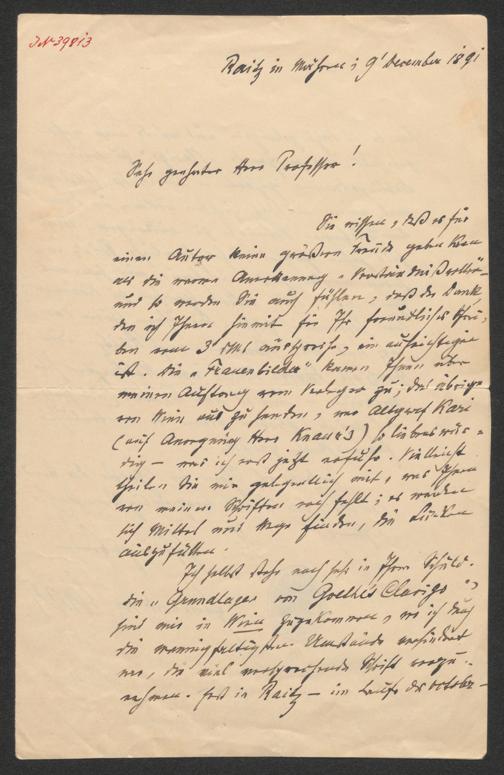 J.N. 39813
Raitz in Mähren; 9' December 1891
Sehr geehrter Herr Professor!
Sie wissen, daß es für
einen Autor keine größere Freude geben kann
als die warme Anerkennung u Verständnißvolle
und so werden Sie auch fühlen, daß der Dank,
den ich Ihnen hiemit für Ihr freundliches Schrei-
ben vom 3 dMts ausspreche, ein aufrichtiger
ist. Die „Frauenbilder" kamen Ihnen über
meinen Auftrag vom Verleger zu; das übrige
von Wien aus zu senden, war Altgraf Karl
(auf Anregung Herr Knauer's) so liebenswür-
dig — was ich erst jetzt erfuhr. Vielleicht
theilen Sie mir gelegentlich mit, was Ihnen
von meinen Schriften noch fehlt; es werden
sich Mittel und Wege finden, die Lücken
auszufüllen.
Ich selbst stehe noch sehr in Ihrer Schuld.
Die „Grundlagen von Goethe's Clavigo"
sind mir in Wien zugekommen, wo ich durch
die mannigfaltigsten Umstände verhindert
war, die viel versprechende Schrift vorzu-
nehmen. Erst in Raitz — im Laufe des October